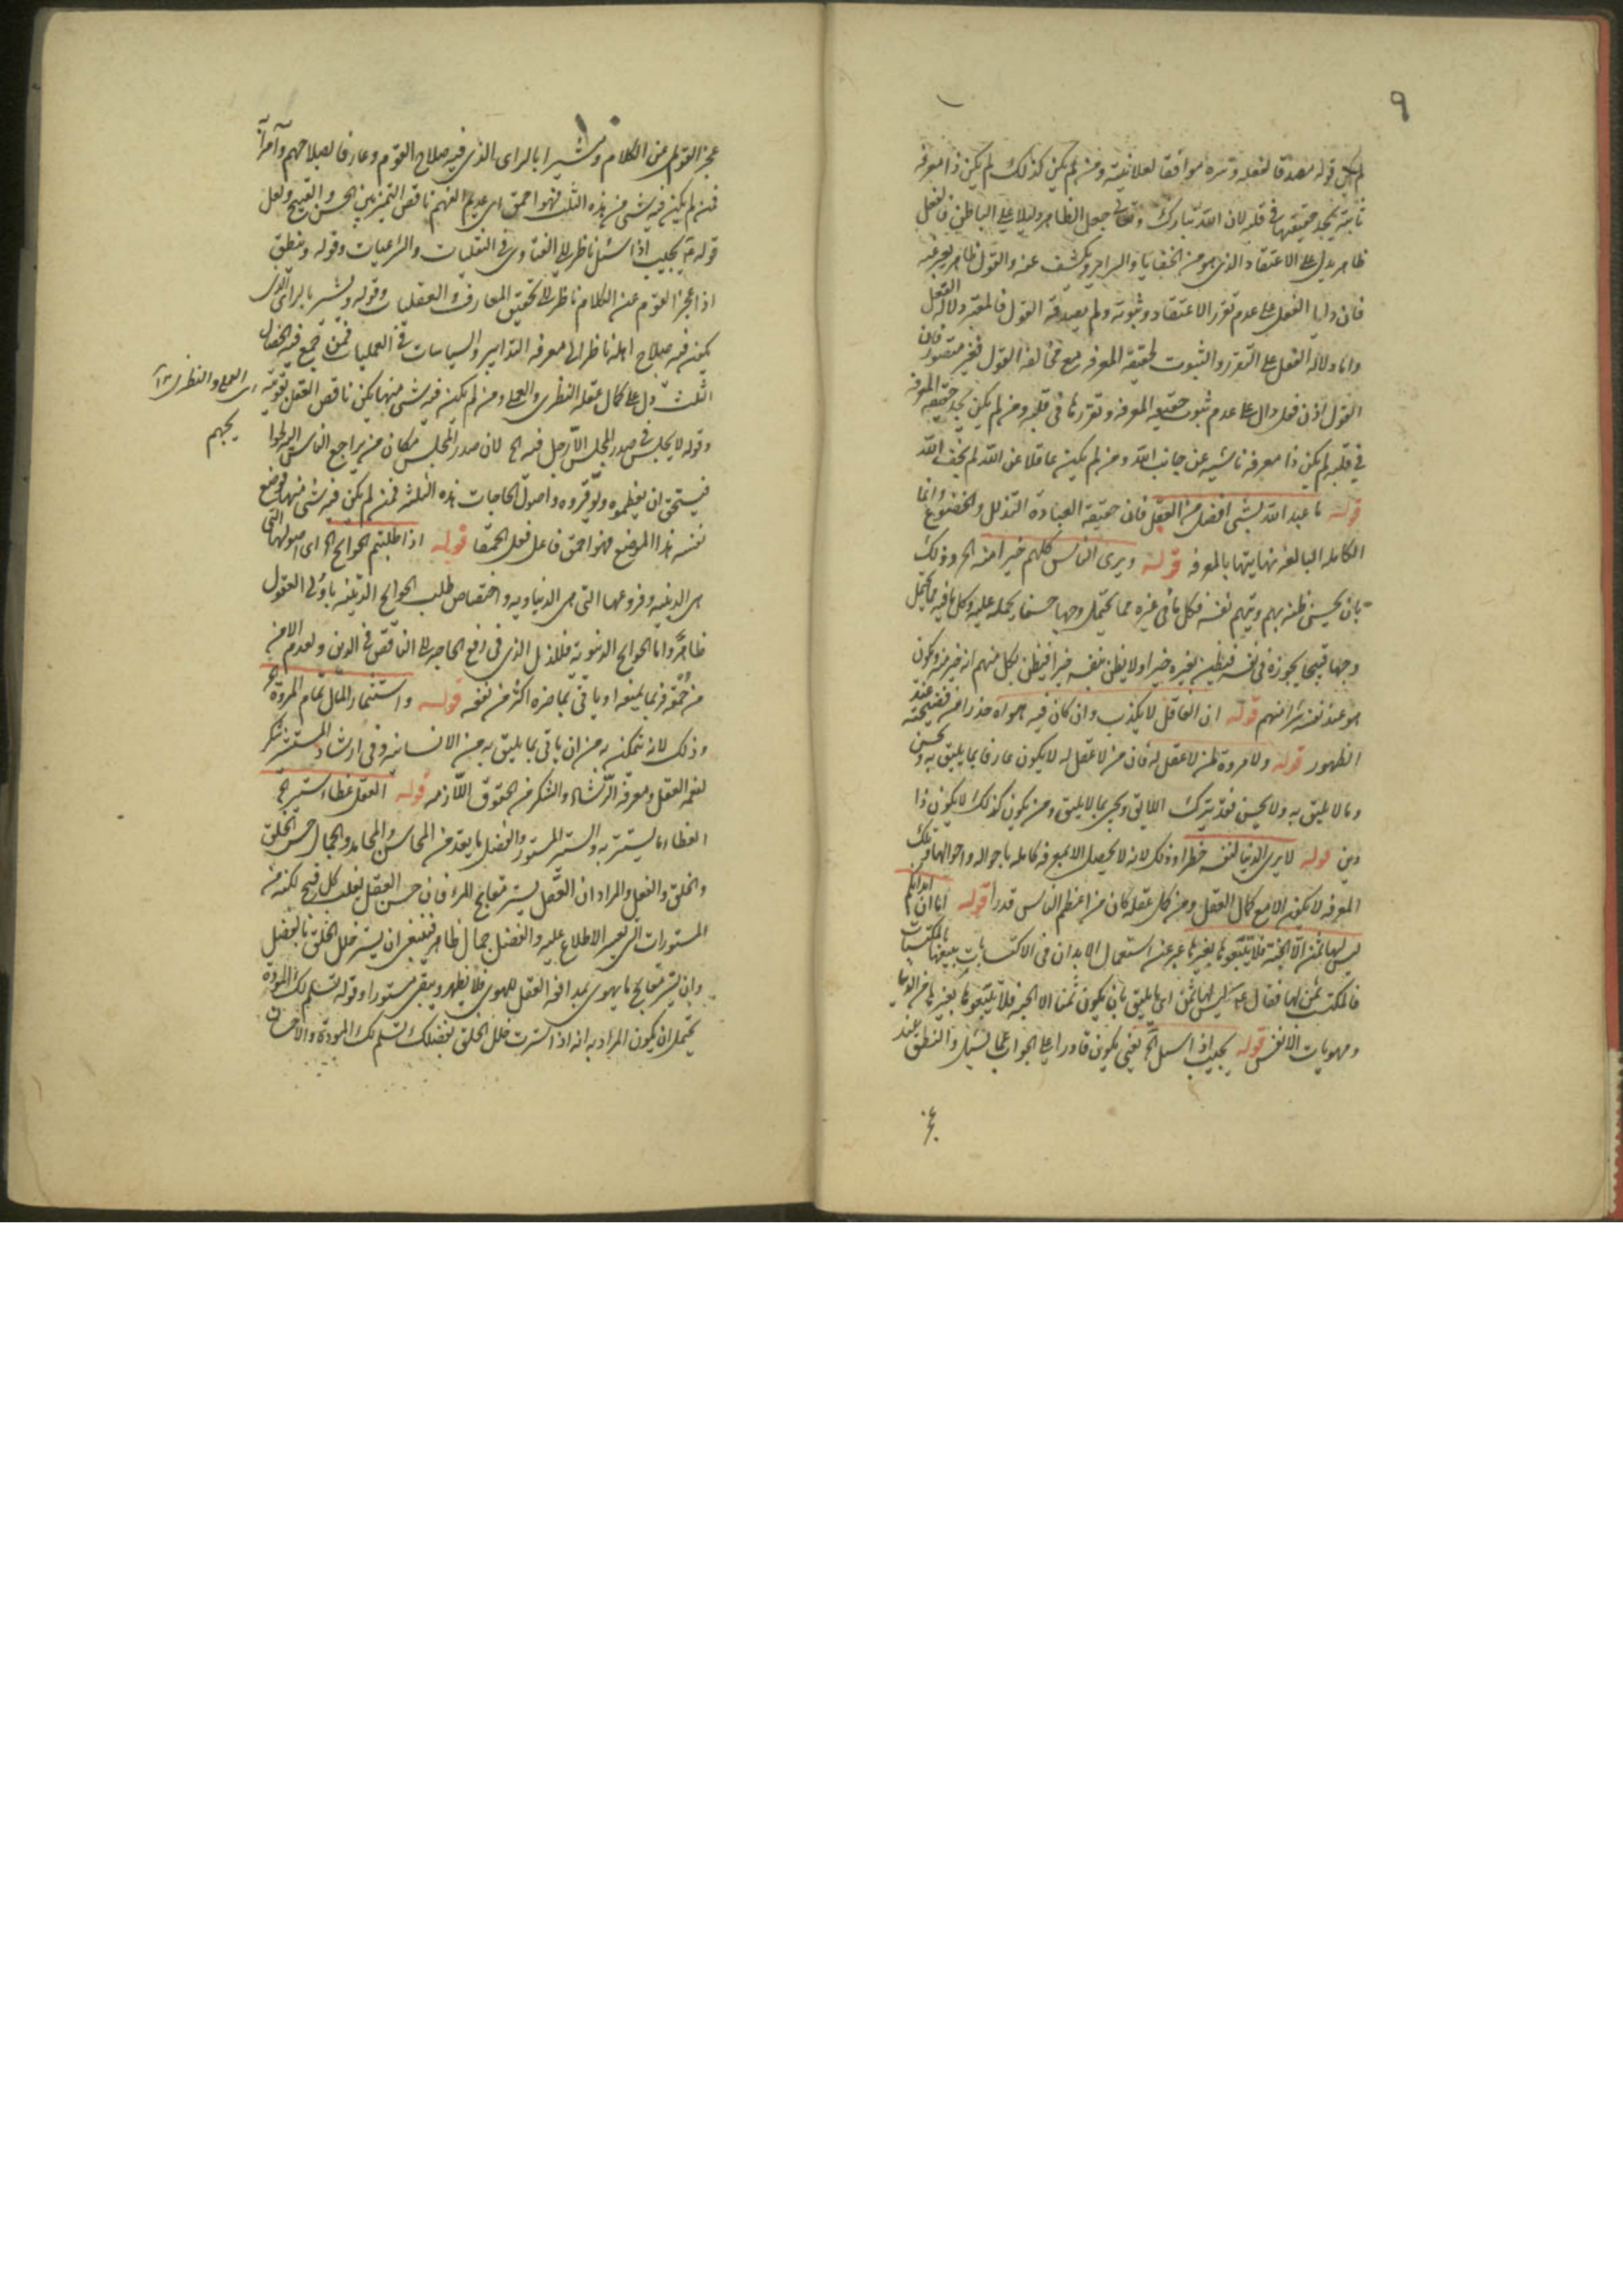 ٩
لم يكن قوله مصدقا لفعله وسره موافقا لعلانيته ومن لم يكن كذلك لم يكن ذا معرفة
ثابتة يجد حقيقتها في قلبه لان الله تبارك وتعالى جعل الظاهر دليلا على الباطن فالفعل
ظاهر يدل على الاعتقاد الذي هو من الخفايا والسراير ويكشف عنه والقول ظاهر يعبر عنه
فان دل الفعل على عدم تقرر الاعتقاد وثبوته ولم يصدقه القول فالمعتبر دلالة الفعل
واما دلالة الفعل على التقرر والثبوت لحقيقة المعرفة مع مخالفة القول فغير متصور فان
القول اذن فعل دال على عدم ثبوت حقيقة المعرفة وتقررها في قلبه ومن لم يكن يجد حقيقة المعرفة
في قلبه لم يكن ذا معرفة ناشية عن جانب الله ومن لم يكن عاقلا عن الله لم يخف الله
قوله ما عبد الله بشئ افضل من العقل فان حقيقة العبادة التذلل والخضوع وانما
الكاملة البالغة نهايتها بالمعرفة قوله ويرى الناس كلهم خيرا منه الخ وذلك
بان يحسن ظنه بهم ويتهم نفسه فكل ما في غيره مما يحتمل وجها حسنا يحمله عليه وكل ما فيه مما يحتمل
وجها قبيحا يجوزه في نفسه فيظن بغيره خيرا ولا يظن بنفسه خيرا فيظن بكل منهم انه خير منه ويكون
هو عند نفسه شرا منهم قوله ان العاقل لا يكذب وان كان فيه هواه حذرا من فضيحته عند
الظهور قوله ولا مروة لمن لا عقل له فان من لا عقل له لا يكون عارفا بما يليق به ويحسن
وما لا يليق به ولا يحسن فقد يترك اللايق ويجئ بما لا يليق ومن يكون كذلك لا يكون ذا
دين قوله لا يرى الدنيا لنفسه خطرا وذلك لانه لا يحصل الا بمعرفة كاملة باحواله واحوالها وتلك
المعرفة لا يكون الا مع كمال العقل ومن كمل عقله كان من اعظم الناس قدرا قوله اما ان ابدانكم
ليس لها ثمن الا الجنة فلا تبيعوها بغيرها عبر عنه استعمال الابدان في الاكتسابات ببيعها بالمكتسبات
فالمكتسب ثمن لها فقال ع ليس لها ثمن اي ما يليق بان يكون ثمنا الا الجنة فلا تبيعوها بغيرها من الدنيا
ومهويات الانفس قوله يجيب اذا سئل الخ يعني يكون قادرا على الجواب عما يسئل والنطق عند
١٠
عجز القوم عن الكلام ومشيرا بالراى الذي فيه صلاح القوم وعارفا بصلاحهم وآمرا
فمن لم يكن فيه شئ من هذه الثلث فهو احمق اي عديم الفهم ناقص التميز بين الحسن والقبيح ولعل
قوله ع يجيب اذا سئل ناظر الى الفتاوى في النقليات والشرعيات وقوله وينطق
اذا عجز القوم عن الكلام ناظر الى تحقيق المعارف والعقليات وقوله ويشير بالراى الذي
يكون فيه صلاح اهله ناظر الى معرفة التدابير والسياسات في العمليات فمن جمع فيه الخصال
الثلث دل على كمال عقله النظري والعملي ومن لم يكن فيه شئ منها يكن ناقص العقل بقوتيه
اي العملي والنظري
وقوله لا يجلس في صدر المجلس الا رجل فيه الخ لان صدر المجلس مكان من يراجع الناس اليه لحوا
يجهم
فيستحق ان يعظموه ويوقروه واصول الحاجات هذه الثلثة فمن لم يكن فيه شئ منها فوضع
نفسه هذا الموضع فهو احمق فاعل فعل الحمقا قوله اذا طلبتم الحوائج الخ اي اصولها التي
هي الدينية وفروعها التي هي الدنياوية واختصاص طلب الحوايج الدينية باولى العقول
ظاهر واما الحوايج الدنيوية فللذل الذي في رفع الحاجة الى الناقص في الدين ولعدم الامن
من حمقه فربما يمنعه او ياتى بما ضره اكثر من نفعه قوله واستثمار المال تمام المروة الخ
وذلك لانه يتمكن به من ان ياتى بما يليق به من الانسانية وفي ارشاد المستشير شكر
لنعمة العقل ومعرفة الرشاد والشكر من الحقوق اللازمة قوله العقل غطاء ستير الخ
الغطاء ما يستتر به والستير المستور والفضل ما يعد من المحاسن والمحامد والجمال حسن الخلق
والخلق والفعل والمراد ان العقل يستر مقابح المرء فان حسن العقل يغلب كل قبيح لكنه من
المستورات التي يعسر الاطلاع عليه والفضل جمال ظاهر فينبغي ان يستر خلل الخلق بالفضل
وان يستر مقابح ما يهوى بمدافعة العقل للهوى فلا يظهر ويبقى مستورا وقوله تسلم لك المودة
يحتمل ان يكون المراد به انه اذا سترت خلل الخلق بفضلك تسلم لك المودة والاحسان